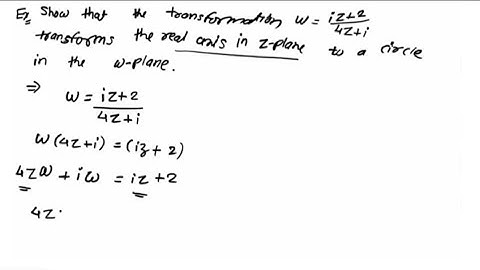 Ex, Show that the transformation w = iz+2 / 4z+i
transforms the real axis in z-plane to a circle
in the w-plane.
⇒ w = iz+2 / 4z+i
w(4z+i) = (iz+2)
4zw + iw = iz+2
4z.